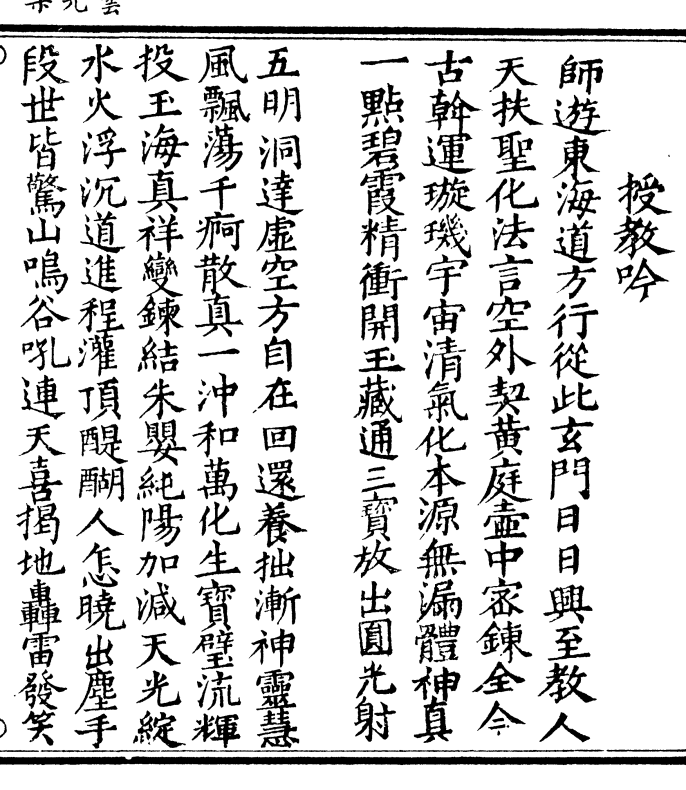 授教吟
師遊東海道方行從此玄門日日興至教人
天扶聖化法言空外契黄庭壺中密鍊全今
古斡運璇璣宇宙清氣化本源無漏體神真
一點碧霞精衝開玉藏通三寶放出圓光射
五明洞達虛空方自在回還養拙漸神靈慧
風飄蕩千痾散真一沖和萬化生寶璧流輝
投玉海真祥變鍊結朱嬰純陽加減天光綻
水火浮沉道進程灌頂醍醐人怎曉出塵手
段世皆驚山鳴谷吼連天喜揭地轟雷發笑